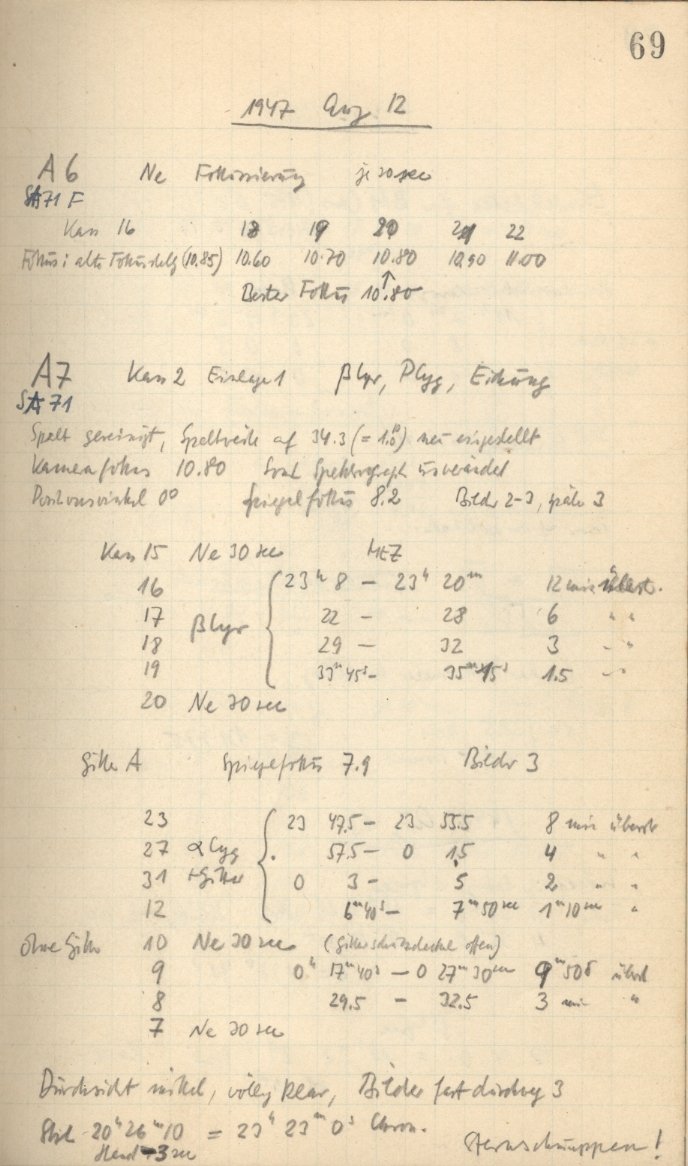 69
1947 Aug 12
A6 Ne Fokussierung je 20 sec
SA71 F
Kass 16 18 19 20 21 22
Fokus: alte Fokusstellg (10.85) 10.60 10.70 10.80 10.90 11.00
↑
Bester Fokus 10.80
A7 Kass 2 Einlage 1 β Lyr, P Cyg, Eichung
SA71
Spalt gereinigt, Spaltweite auf 34.3 (= 1.0) neu eingestellt
Kamerafokus 10.80 Sonst Spektrograph unverändert
Positionswinkel 0° Spiegelfokus 8.2 Bilder 2-3, später 3
Kass 15 Ne 30 sec MEZ
16 23ʰ 8 – 23ʰ 20ᵐ 12 min überst.
17 β Lyr 22 – 28 6 " "
18 29 – 32 3 " "
19 33ᵐ45ˢ – 35ᵐ15ˢ 1.5 " "
20 Ne 30 sec
Gitter A Spiegelfokus 7.9 Bilder 3
23 23 47.5 – 23 55.5 8 min überst
27 α Cyg 57.5 – 0 1.5 4 " "
31 + Gitter 0 3 – 5 2 " "
12 6ᵐ40ˢ – 7ᵐ50ˢᵉᶜ 1ᵐ10ˢᵉᶜ "
ohne Gitter 10 Ne 30 sec (Gitterschutzdeckel offen)
9 0ʰ 17ᵐ40ˢ – 0 27ᵐ30ˢᵉᶜ 9ᵐ50ˢ überst
8 29.5 – 32.5 3 min "
7 Ne 30 sec
Durchsicht mittel, völlig klar, Bilder fast durchweg 3
20ʰ26ᵐ10 = 23ʰ 23ᵐ 0ˢ Chron.
Stand -3 sec Sternschnuppen!